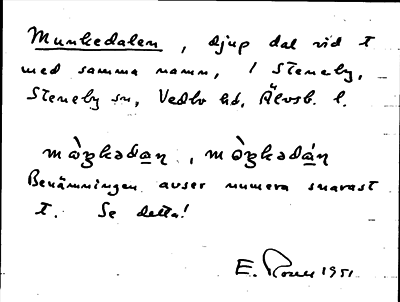 Munkedalen, djup dal vid t
med samma namn, i Steneby,
Steneby sn, Vedbo hd, Älvsb. l.
mὰŋkədan, mὸŋkədán
Benämningen avser numera snarast
t. Se detta!
E. 1951